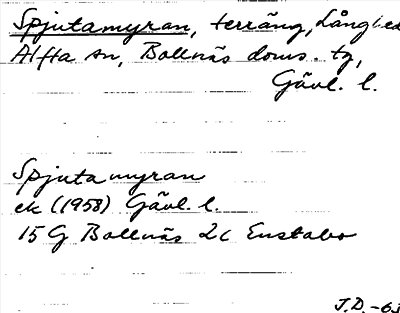 Spjutamyran, terräng, Långhed
Alfta sn, Bollnäs doms. tg,
Gävl. l.
Spjutamyran
ek (1958) Gävl. l.
15G Bollnäs 2c Enstabo
J.D. -63